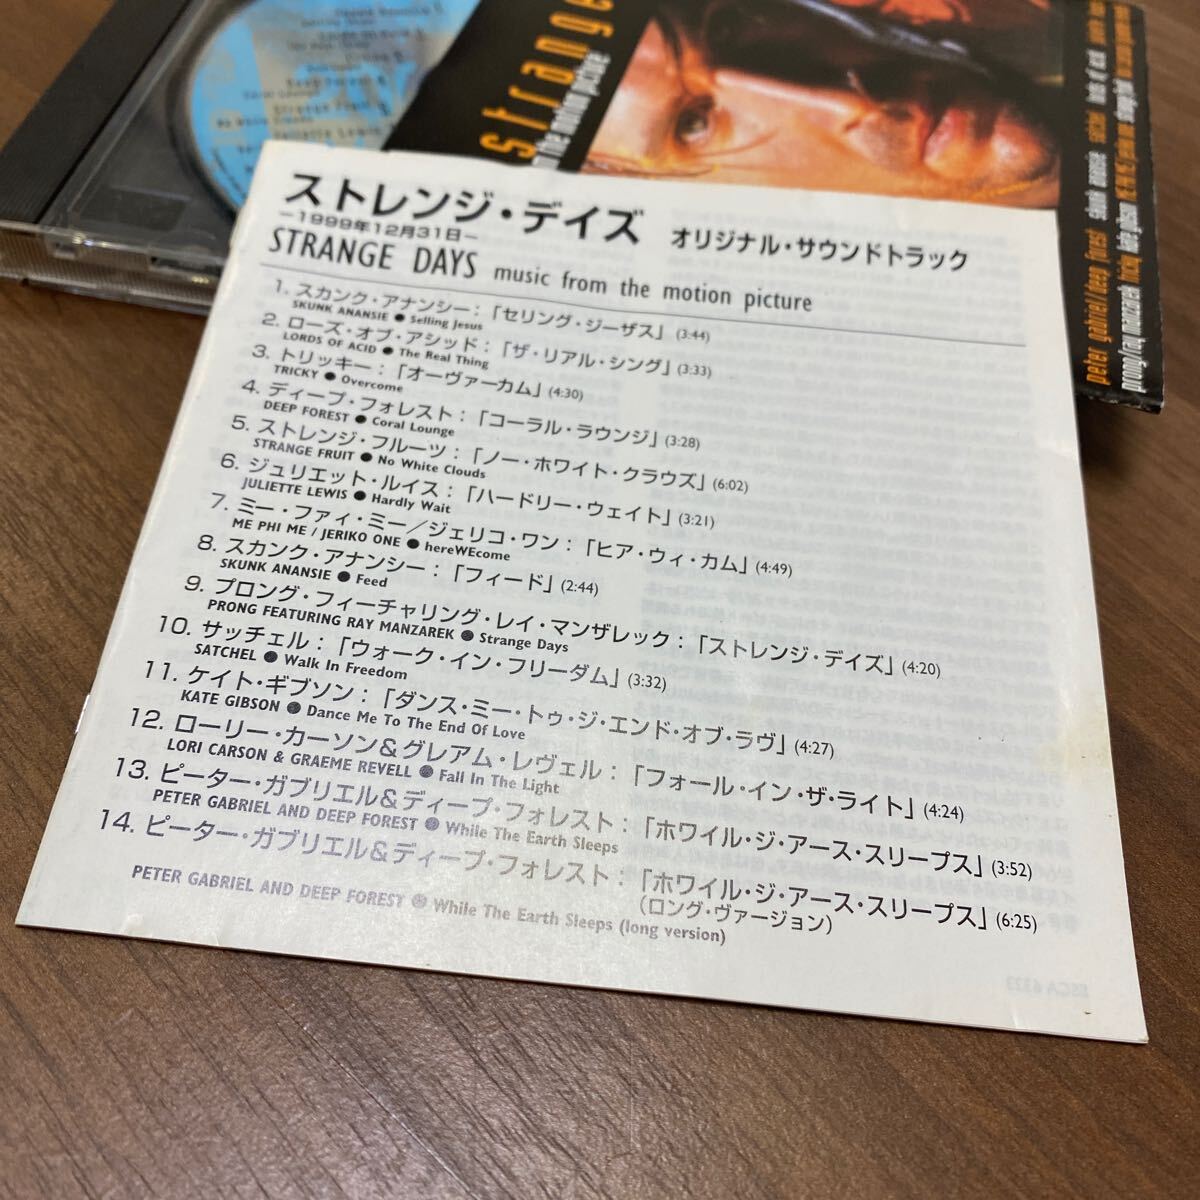 strange
the motion picture
peter gabriel/deep forest skunk anansie satchel lords of acid
prong/ray manzarek tricky kate gibson
ストレンジ・デイズ オリジナル・サウンドトラック
−1999年12月31日−
STRANGE DAYS music from the motion picture
1. スカンク・アナンシー：「セリング・ジーザス」(3:44)
SKUNK ANANSIE ● Selling Jesus
2. ローズ・オブ・アシッド：「ザ・リアル・シング」(3:33)
LORDS OF ACID ● The Real Thing
3. トリッキー：「オーヴァーカム」(4:30)
TRICKY ● Overcome
4. ディープ・フォレスト：「コーラル・ラウンジ」(3:28)
DEEP FOREST ● Coral Lounge
5. ストレンジ・フルーツ：「ノー・ホワイト・クラウズ」(6:02)
STRANGE FRUIT ● No White Clouds
6. ジュリエット・ルイス：「ハードリー・ウェイト」(3:21)
JULIETTE LEWIS ● Hardly Wait
7. ミー・ファイ・ミー／ジェリコ・ワン：「ヒア・ウィ・カム」(4:49)
ME PHI ME / JERIKO ONE ● hereWEcome
8. スカンク・アナンシー：「フィード」(2:44)
SKUNK ANANSIE ● Feed
9. プロング・フィーチャリング・レイ・マンザレック：「ストレンジ・デイズ」(4:20)
PRONG FEATURING RAY MANZAREK ● Strange Days
10. サッチェル：「ウォーク・イン・フリーダム」(3:32)
SATCHEL ● Walk In Freedom
11. ケイト・ギブソン：「ダンス・ミー・トゥ・ジ・エンド・オブ・ラヴ」(4:27)
KATE GIBSON ● Dance Me To The End Of Love
12. ローリー・カーソン＆グレアム・レヴェル：「フォール・イン・ザ・ライト」(4:24)
LORI CARSON & GRAEME REVELL ● Fall In The Light
13. ピーター・ガブリエル＆ディープ・フォレスト：「ホワイル・ジ・アース・スリープス」(3:52)
PETER GABRIEL AND DEEP FOREST ● While The Earth Sleeps
14. ピーター・ガブリエル＆ディープ・フォレスト：「ホワイル・ジ・アース・スリープス」(6:25)
（ロング・ヴァージョン）
PETER GABRIEL AND DEEP FOREST ● While The Earth Sleeps (long version)